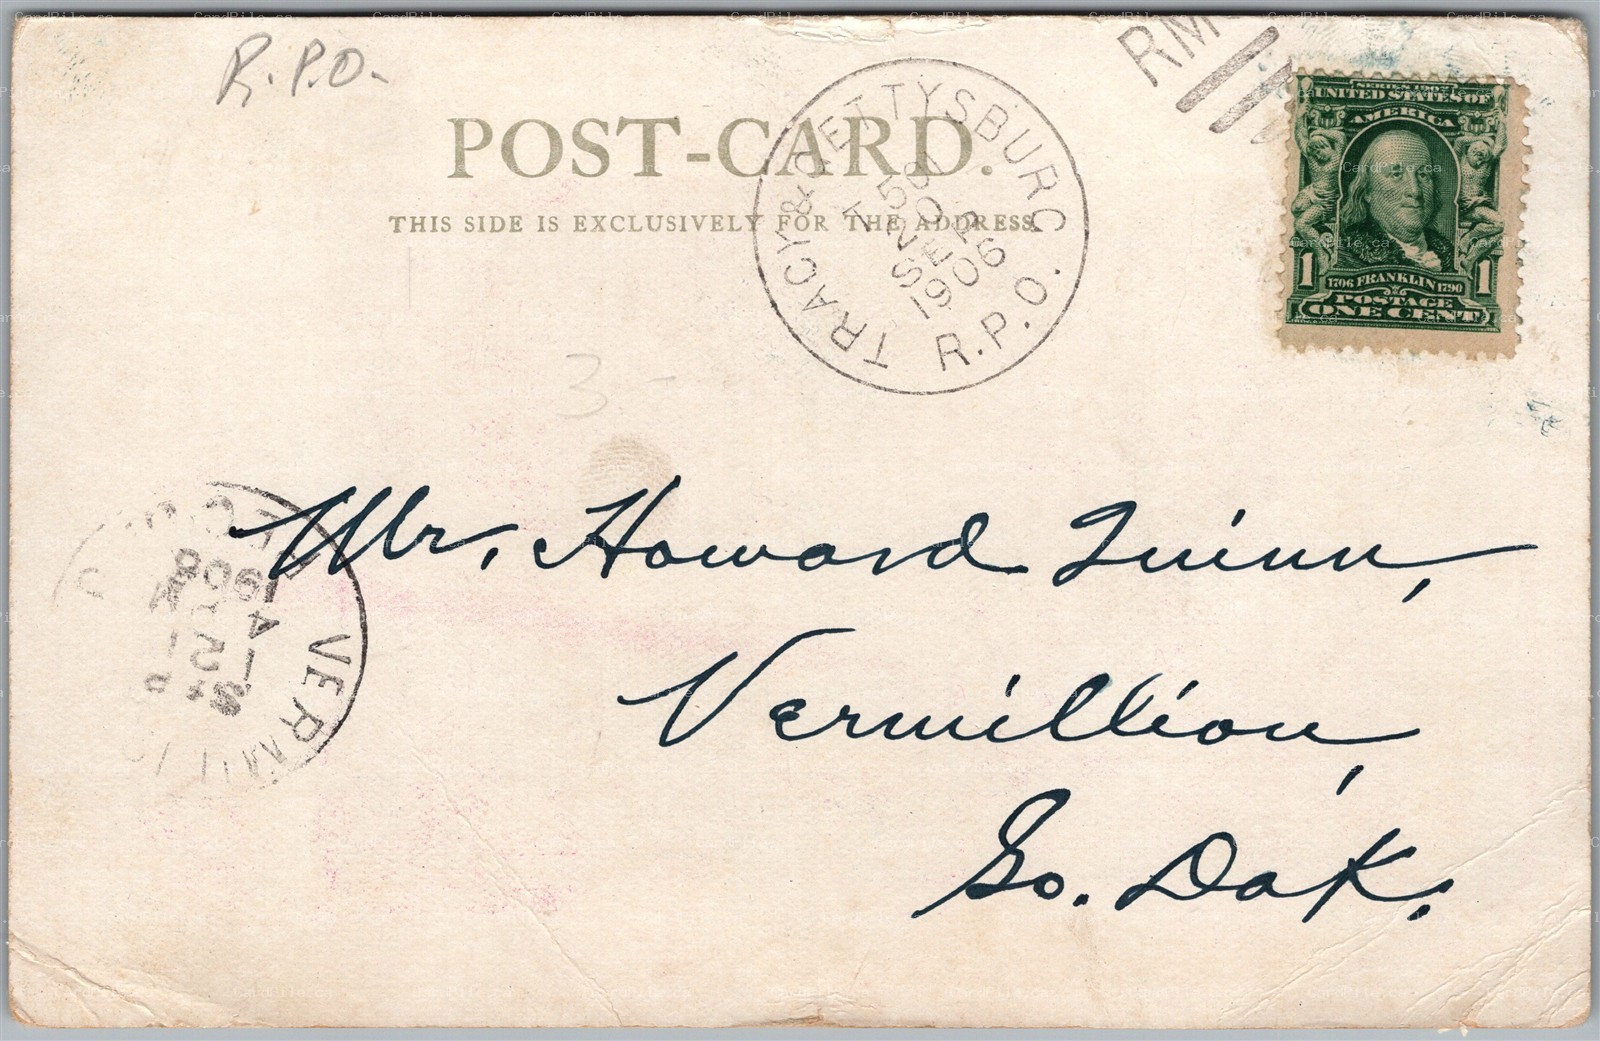 R.P.O.
RM
POST-CARD.
THIS SIDE IS EXCLUSIVELY FOR THE ADDRESS.
TRACY & GETTYSBURG R.P.O.
SEP
1906
SERIES 1902
UNITED STATES OF
AMERICA
1706 FRANKLIN 1790
1 1
POSTAGE
ONE CENT
3-
Mr. Howard Quinn,
Vermillion,
So. Dak.
VERMILLIO
1906
CardPile.ca